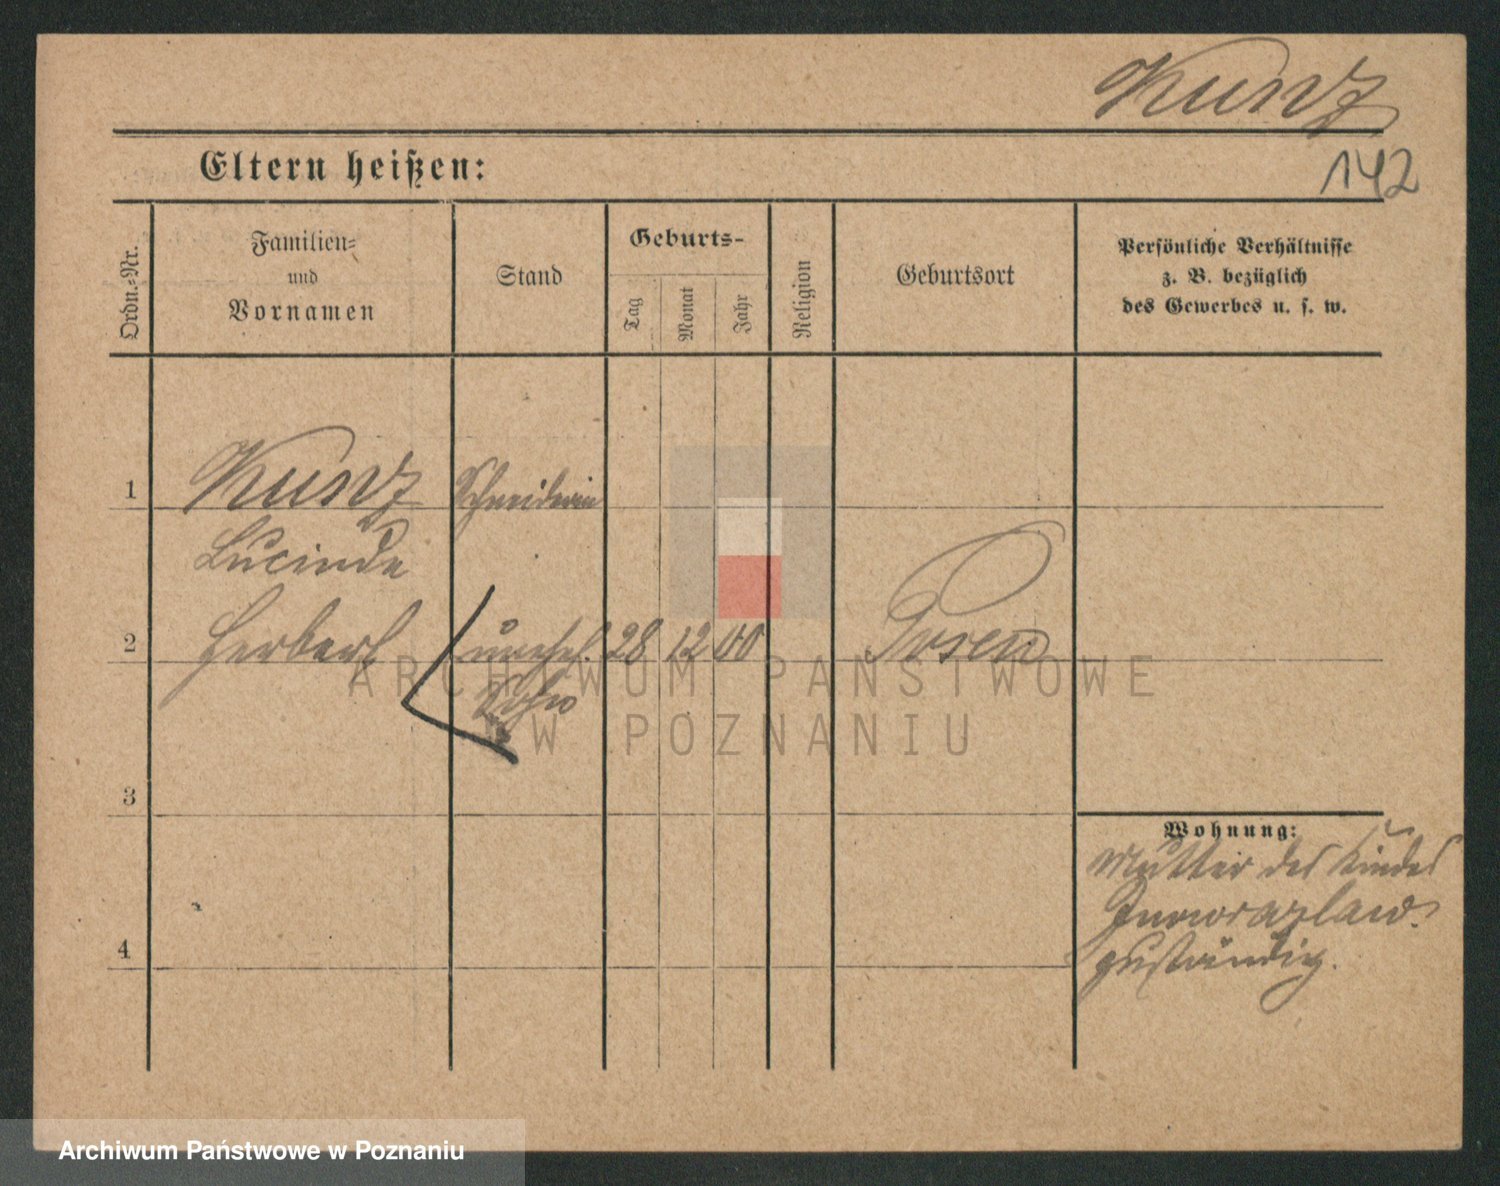 Kunz
142
Eltern heißen:
Ordn.-Nr.
Familien-
und
Vornamen
Stand
Geburts-
Tag
Monat
Jahr
Religion
Geburtsort
Persönliche Verhältnisse
z. B. bezüglich
des Gewerbes u. s. w.
1
Kunz
Schneiderin
Lucinde
2
Herbert
unehel.
28
12
00
Posen
Sohn
3
4
Wohnung:
Mutter des Kindes
zuständig.
ARCHIWUM PAŃSTWOWE
W POZNANIU
Archiwum Państwowe w Poznaniu